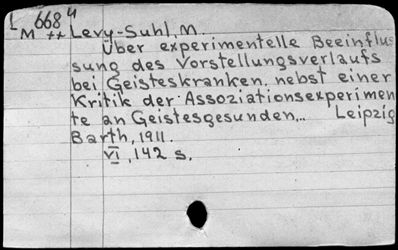 L 668 4
M ** Levy-Suhl, M.
Über experimentelle Beeinflus
sung des Vorstellungsverlaufs
bei Geisteskranken, nebst einer
Kritik der Assoziationsexperimen
te an Geistesgesunden,.. Leipzig
Barth, 1911.
VI, 142 s.